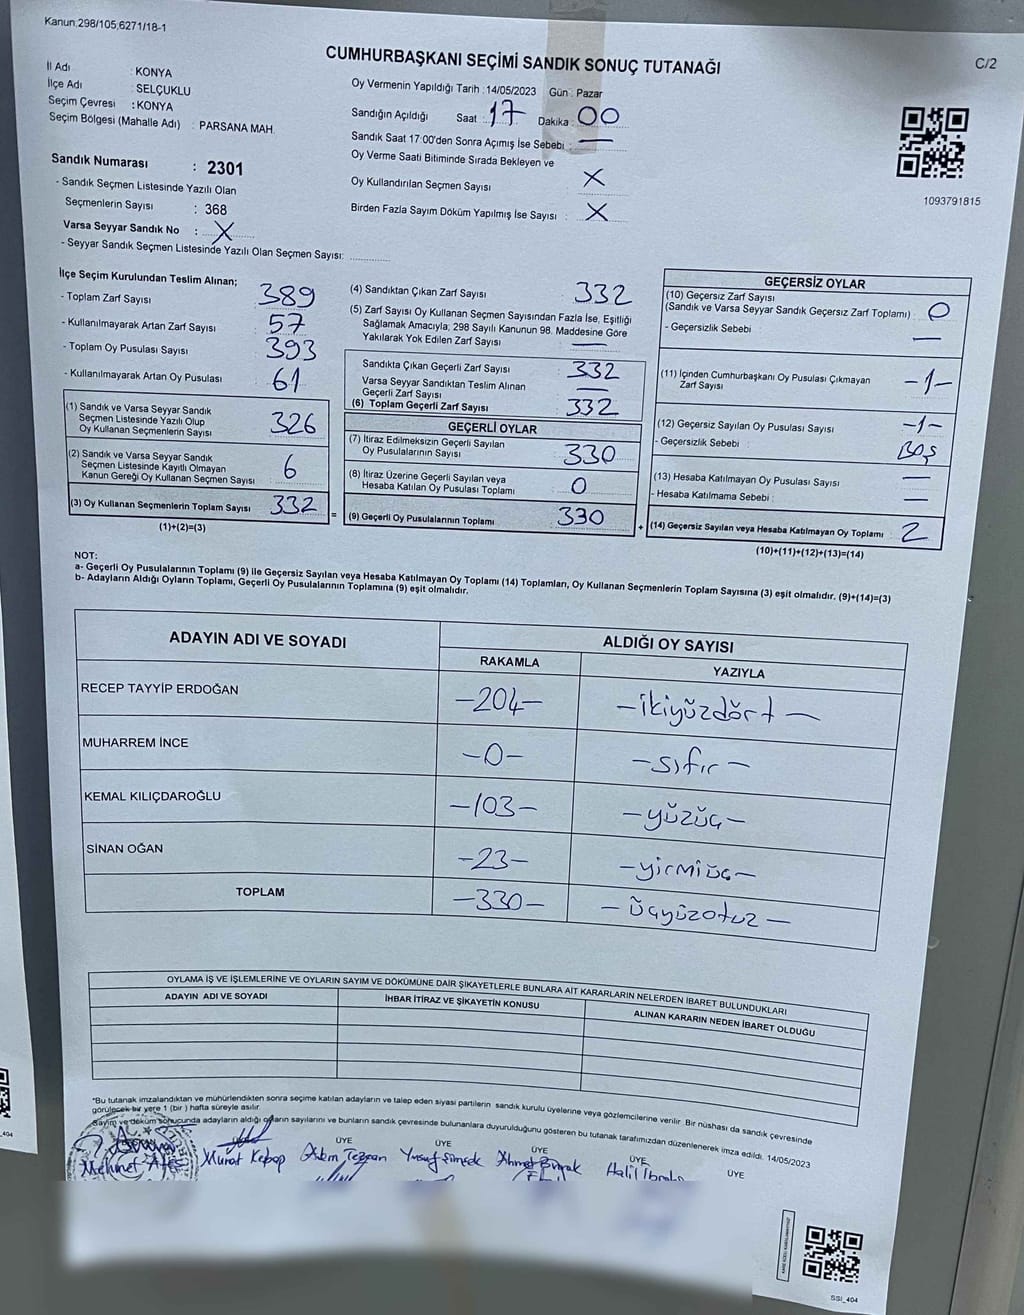 Kanun.298/105,6271/18-1
CUMHURBAŞKANI SEÇİMİ SANDIK SONUÇ TUTANAĞI
C/2
İl Adı : KONYA
İlçe Adı : SELÇUKLU
Seçim Çevresi : KONYA
Seçim Bölgesi (Mahalle Adı) : PARSANA MAH.
Oy Vermenin Yapıldığı Tarih : 14/05/2023 Gün : Pazar
Sandığın Açıldığı Saat : 17 Dakika : 00
Sandık Saat 17:00'den Sonra Açımış İse Sebebi : —
Oy Verme Saati Bitiminde Sırada Bekleyen ve
Oy Kullandırılan Seçmen Sayısı X
Birden Fazla Sayım Döküm Yapılmış İse Sayısı : X
1093791815
Sandık Numarası : 2301
- Sandık Seçmen Listesinde Yazılı Olan
Seçmenlerin Sayısı : 368
Varsa Seyyar Sandık No : X
- Seyyar Sandık Seçmen Listesinde Yazılı Olan Seçmen Sayısı:
İlçe Seçim Kurulundan Teslim Alınan;
- Toplam Zarf Sayısı : 389
- Kullanılmayarak Artan Zarf Sayısı : 57
- Toplam Oy Pusulası Sayısı : 393
- Kullanılmayarak Artan Oy Pusulası : 61
(1) Sandık ve Varsa Seyyar Sandık
Seçmen Listesinde Yazılı Olup
Oy Kullanan Seçmenlerin Sayısı : 326
(2) Sandık ve Varsa Seyyar Sandık
Seçmen Listesinde Kayıtlı Olmayan
Kanun Gereği Oy Kullanan Seçmen Sayısı : 6
(3) Oy Kullanan Seçmenlerin Toplam Sayısı : 332
(1)+(2)=(3)
(4) Sandıktan Çıkan Zarf Sayısı : 332
(5) Zarf Sayısı Oy Kullanan Seçmen Sayısından Fazla İse, Eşitliği
Sağlamak Amacıyla; 298 Sayılı Kanunun 98. Maddesine Göre
Yakılarak Yok Edilen Zarf Sayısı : —
Sandıkta Çıkan Geçerli Zarf Sayısı : 332
Varsa Seyyar Sandıktan Teslim Alınan
Geçerli Zarf Sayısı : —
(6) Toplam Geçerli Zarf Sayısı : 332
GEÇERLİ OYLAR
(7) İtiraz Edilmeksizin Geçerli Sayılan
Oy Pusulalarının Sayısı : 330
(8) İtiraz Üzerine Geçerli Sayılan veya
Hesaba Katılan Oy Pusulası Toplamı : 0
= (9) Geçerli Oy Pusulalarının Toplamı : 330
GEÇERSİZ OYLAR
(10) Geçersiz Zarf Sayısı
(Sandık ve Varsa Seyyar Sandık Geçersiz Zarf Toplamı) : 0
- Geçersizlik Sebebi : —
(11) İçinden Cumhurbaşkanı Oy Pusulası Çıkmayan
Zarf Sayısı : -1-
(12) Geçersiz Sayılan Oy Pusulası Sayısı : -1-
- Geçersizlik Sebebi : Boş
(13) Hesaba Katılmayan Oy Pusulası Sayısı : —
- Hesaba Katılmama Sebebi : —
+ (14) Geçersiz Sayılan veya Hesaba Katılmayan Oy Toplamı : 2
(10)+(11)+(12)+(13)=(14)
NOT:
a- Geçerli Oy Pusulalarının Toplamı (9) ile Geçersiz Sayılan veya Hesaba Katılmayan Oy Toplamı (14) Toplamları, Oy Kullanan Seçmenlerin Toplam Sayısına (3) eşit olmalıdır. (9)+(14)=(3)
b- Adayların Aldığı Oyların Toplamı, Geçerli Oy Pusulalarının Toplamına (9) eşit olmalıdır.
ADAYIN ADI VE SOYADI
ALDIĞI OY SAYISI
RAKAMLA YAZIYLA
RECEP TAYYİP ERDOĞAN -204- -ikiyüzdört-
MUHARREM İNCE -0- -sıfır-
KEMAL KILIÇDAROĞLU -103- -yüzüç-
SİNAN OĞAN -23- -yirmiüç-
TOPLAM -330- -üçyüzotuz-
OYLAMA İŞ VE İŞLEMLERİNE VE OYLARIN SAYIM VE DÖKÜMÜNE DAİR ŞİKAYETLERLE BUNLARA AİT KARARLARIN NELERDEN İBARET BULUNDUKLARI
ADAYIN ADI VE SOYADI İHBAR İTİRAZ VE ŞİKAYETİN KONUSU ALINAN KARARIN NEDEN İBARET OLDUĞU
*Bu tutanak imzalandıktan ve mühürlendikten sonra seçime katılan adayların ve talep eden siyasi partilerin sandık kurulu üyelerine veya gözlemcilerine verilir. Bir nüshası da sandık çevresinde
görülecek bir yere 1 (bir) hafta süreyle asılır.
Sayım ve döküm sonucunda adayların aldığı oyların sayılarını ve bunların sandık çevresinde bulunanlara duyurulduğunu gösteren bu tutanak tarafımızdan düzenlenerek imza edildi. 14/05/2023
ÜYE ÜYE ÜYE ÜYE ÜYE
Mehmet Ateş Murat Kebap Tezcan Yusuf Ahmet Halil İbrahim
SSI_404